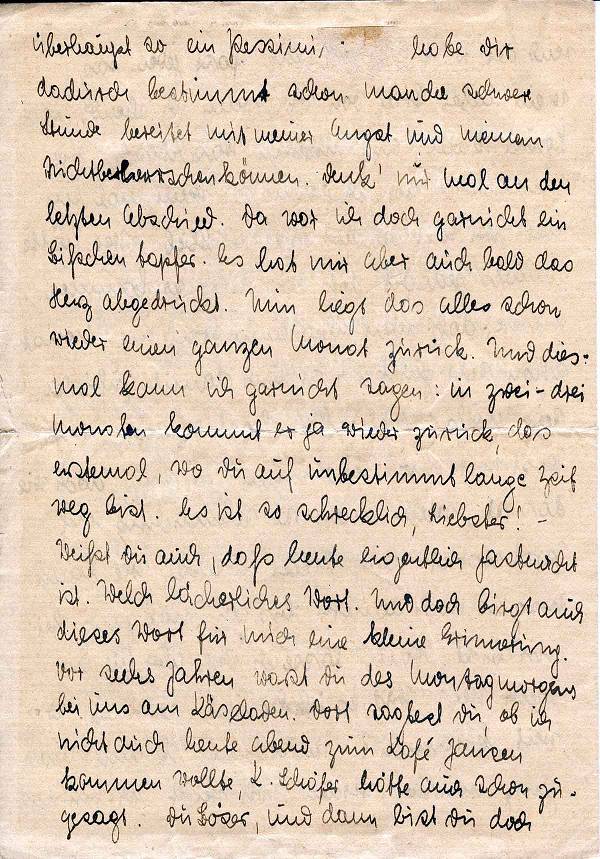 überhaupt so ein Pessimi habe dir
dadurch bestimmt schon manche schwere
Stunde bereitet mit meiner Angst und meinem
Nichtbeherrschenkönnen. Denk' nur mal an den
letzten Abschied. Da war ich doch garnicht ein
bißchen tapfer. Es hat mir aber auch bald das
Herz abgedrückt. Nun liegt das alles schon
wieder einen ganzen Monat zurück. Und dies-
mal kann ich garnicht sagen: in zwei-drei
Monaten kommt er ja wieder zurück, das
erstemal, wo Du auf unbestimmt lange Zeit
weg bist. Es ist so schrecklich, Liebster! -
Weißt Du auch, daß heute eigentlich Fastnacht
ist. Welch lächerliches Wort. Und doch birgt auch
dieses Wort für mich eine kleine Erinnerung.
Vor sechs Jahren warst Du des Montagmorgens
bei uns am Käsladen. Dort sagtest Du, ob ich
nicht auch heute abend zum Kafé Jansen
kommen wollte, K. Schäfer hätte auch schon zu-
gesagt. Du Böser, und dann bist Du doch